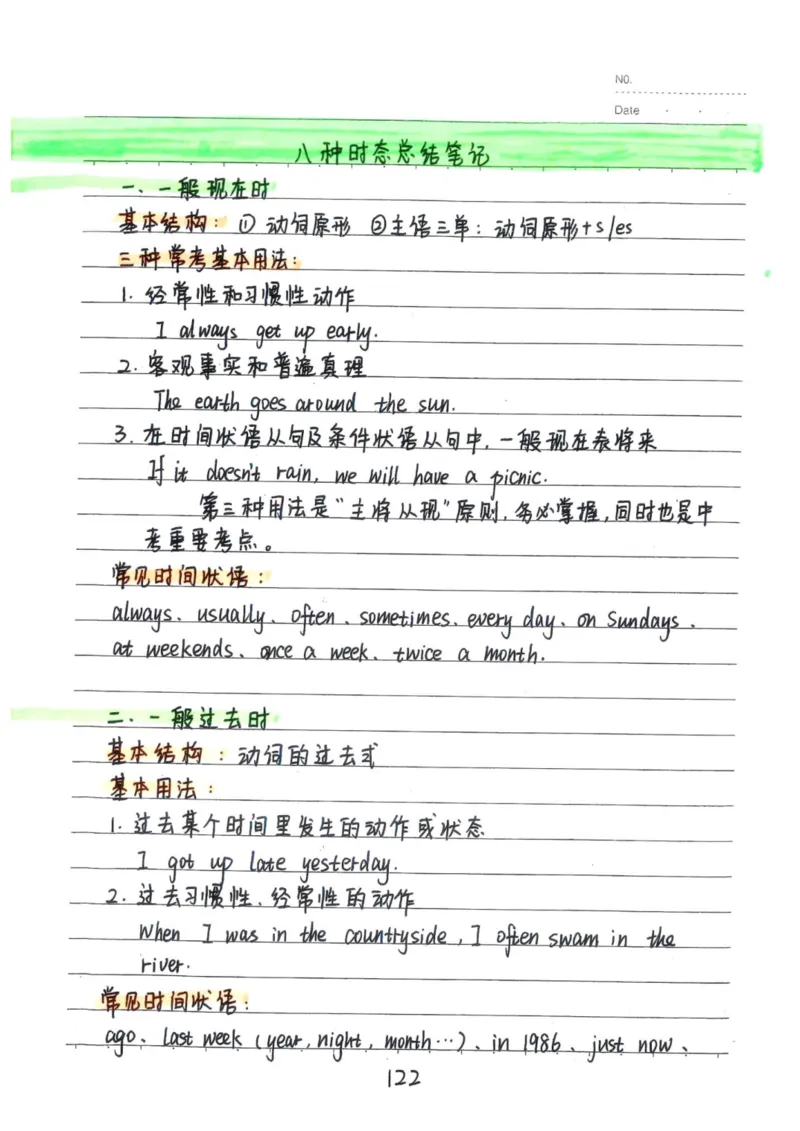 NO.
Date
八种时态总结笔记
一、一般现在时
基本结构：① 动词原形 ②主语三单：动词原形+s/es
三种常考基本用法：
1. 经常性和习惯性动作
I always get up early.
2. 客观事实和普遍真理
The earth goes around the sun.
3. 在时间状语从句及条件状语从句中，一般现在表将来
If it doesn't rain, we will have a picnic.
第三种用法是“主将从现”原则，务必掌握，同时也是中
考重要考点。
常见时间状语：
always、usually、often、sometimes、every day、on Sundays、
at weekends、once a week、twice a month.
二、一般过去时
基本结构：动词的过去式
基本用法：
1. 过去某个时间里发生的动作或状态
I got up late yesterday.
2. 过去习惯性、经常性的动作
When I was in the countryside, I often swam in the
river.
常见时间状语：
ago、last week (year, night, month…)、in 1986、just now、
122